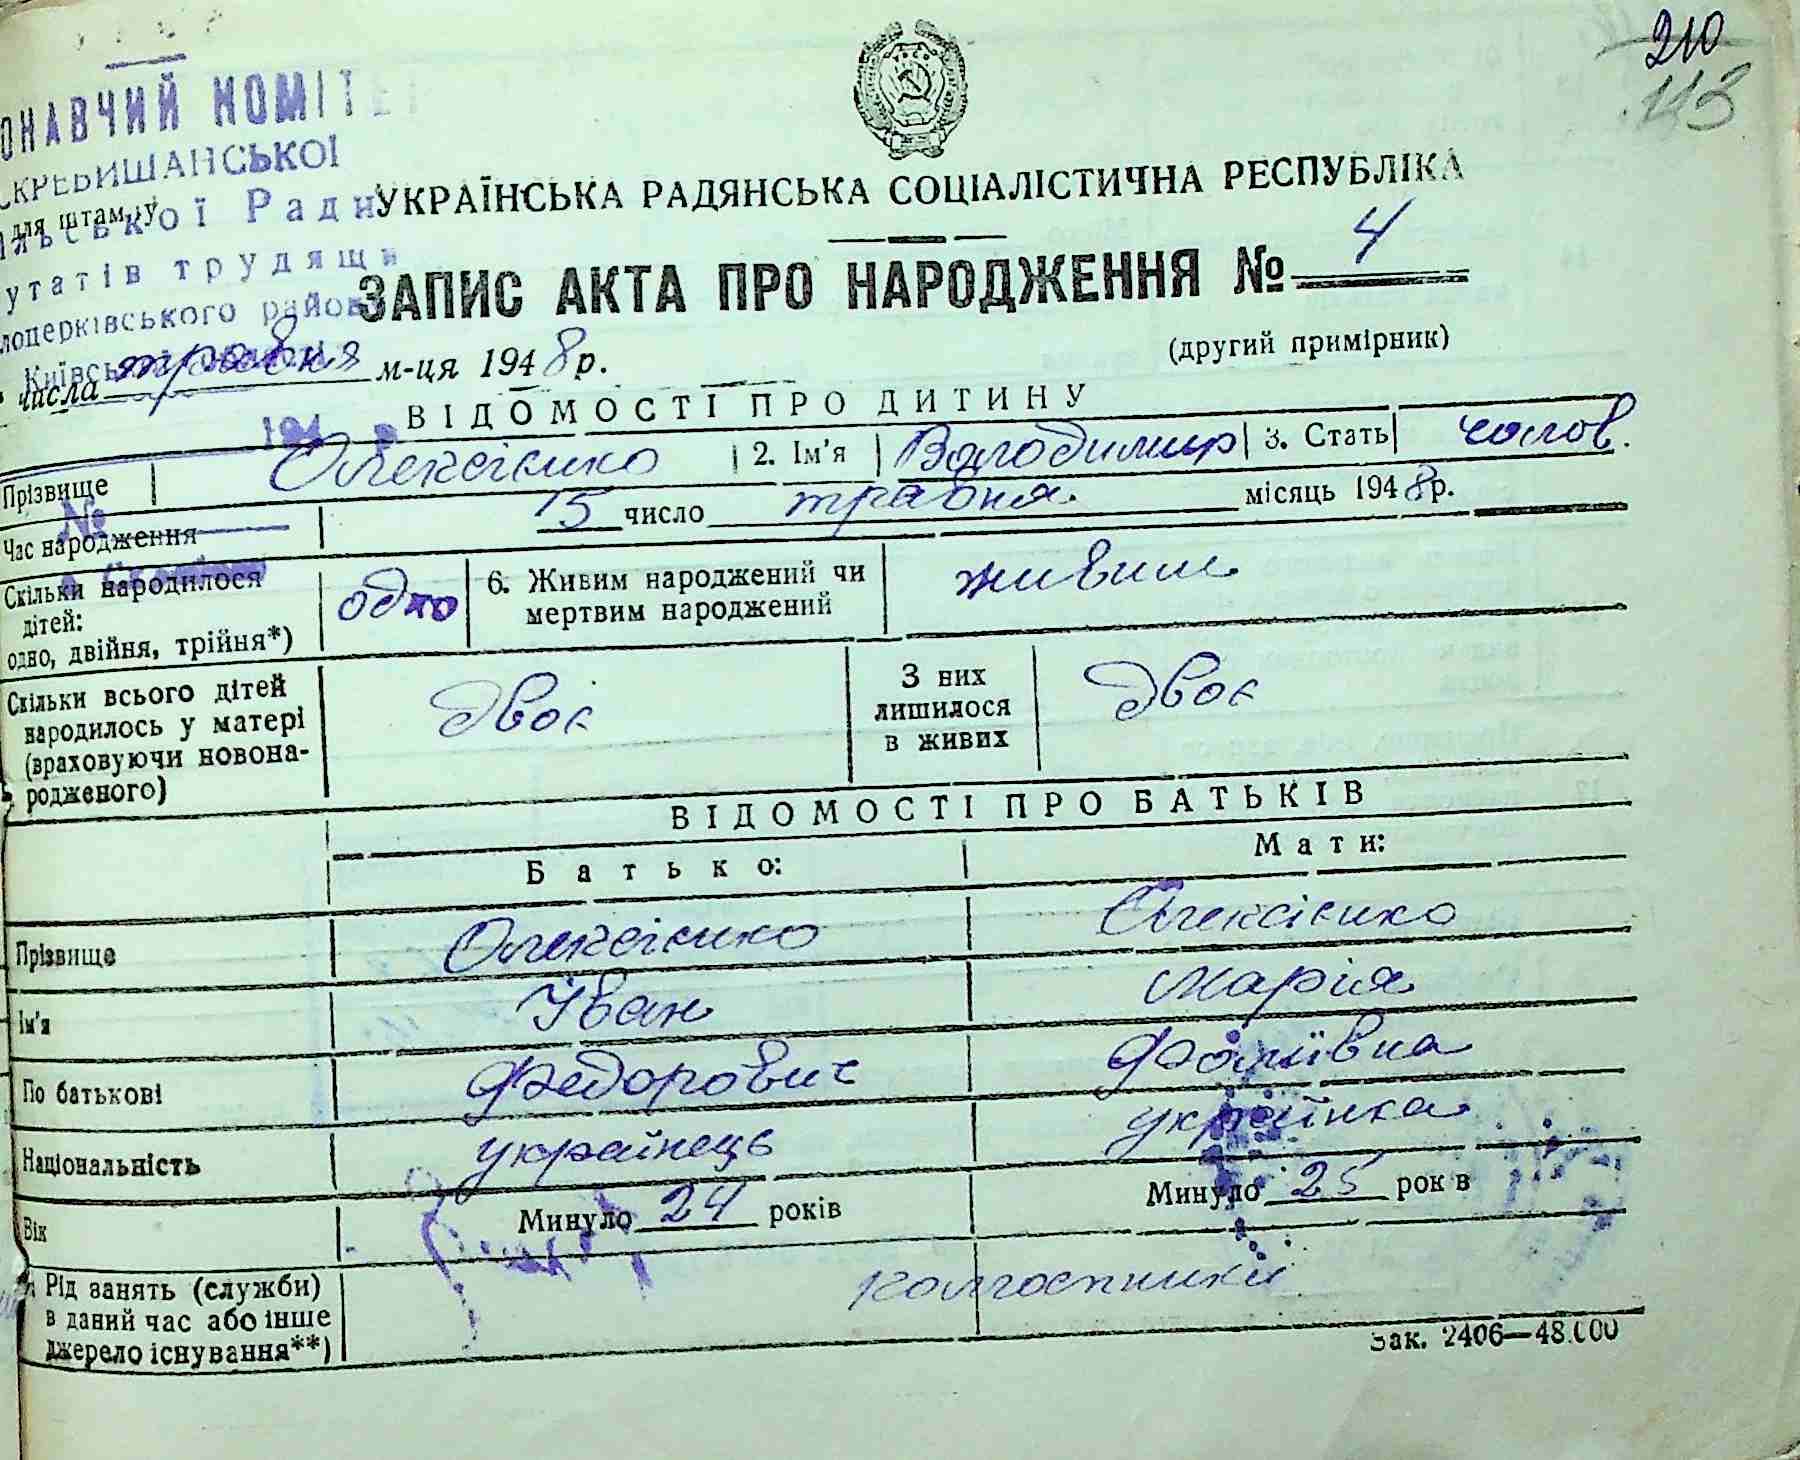 210
113
ОНАВЧИЙ КОМІТЕТ
СКРЕБИШАНСЬКОЇ
для штампу
ільської Ради
утатів трудящи
лоцерківського району
Київської
194 р.
№
УКРАЇНСЬКА РАДЯНСЬКА СОЦІАЛІСТИЧНА РЕСПУБЛІКА
ЗАПИС АКТА ПРО НАРОДЖЕННЯ № 4
(другий примірник)
числа травня м-ця 1948 р.
ВІДОМОСТІ ПРО ДИТИНУ
Прізвище Олексієнко 2. Ім'я Володимир 3. Стать чолов.
Час народження 15 число травня місяць 1948 р.
Скільки народилося дітей: одно, двійня, трійня*) одно 6. Живим народжений чи мертвим народжений живим
Скільки всього дітей народилось у матері (враховуючи новонародженого) двоє З них лишилося в живих двоє
ВІДОМОСТІ ПРО БАТЬКІВ
Батько: Мати:
Прізвище Олексієнко Олексієнко
Ім'я Іван Марія
По батькові Федорович Фоліївна
Національність українець українка
Вік Минуло 24 років Минуло 25 років
Рід занять (служби) в даний час або інше джерело існування**) колгоспники
Зак. 2406—48.000